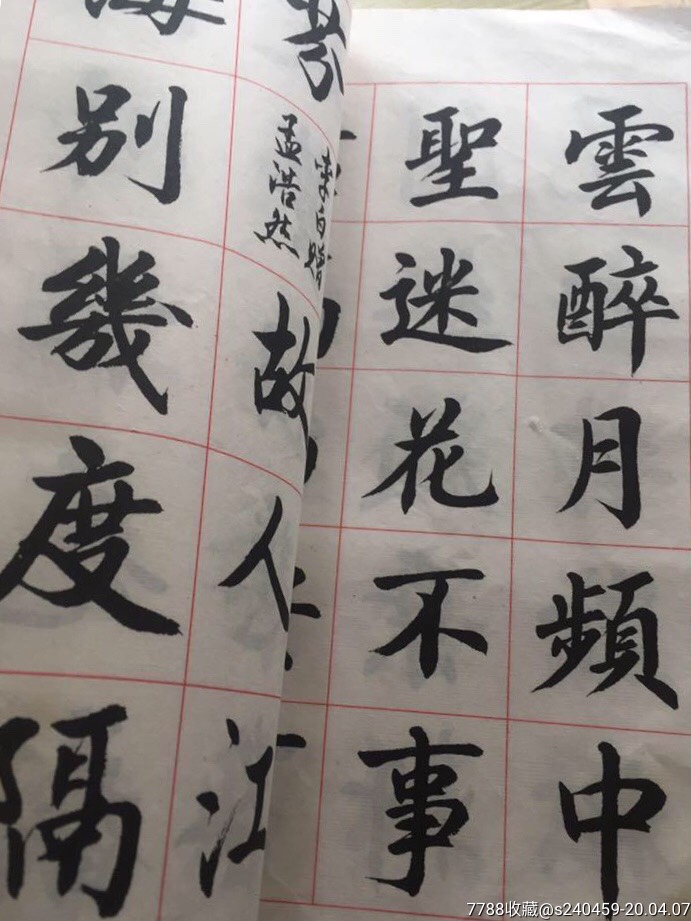 雲醉月頻中
聖迷花不事
芬
李白贈
孟浩然
故人江
海別幾度隔
7788收藏@s240459-20.04.07